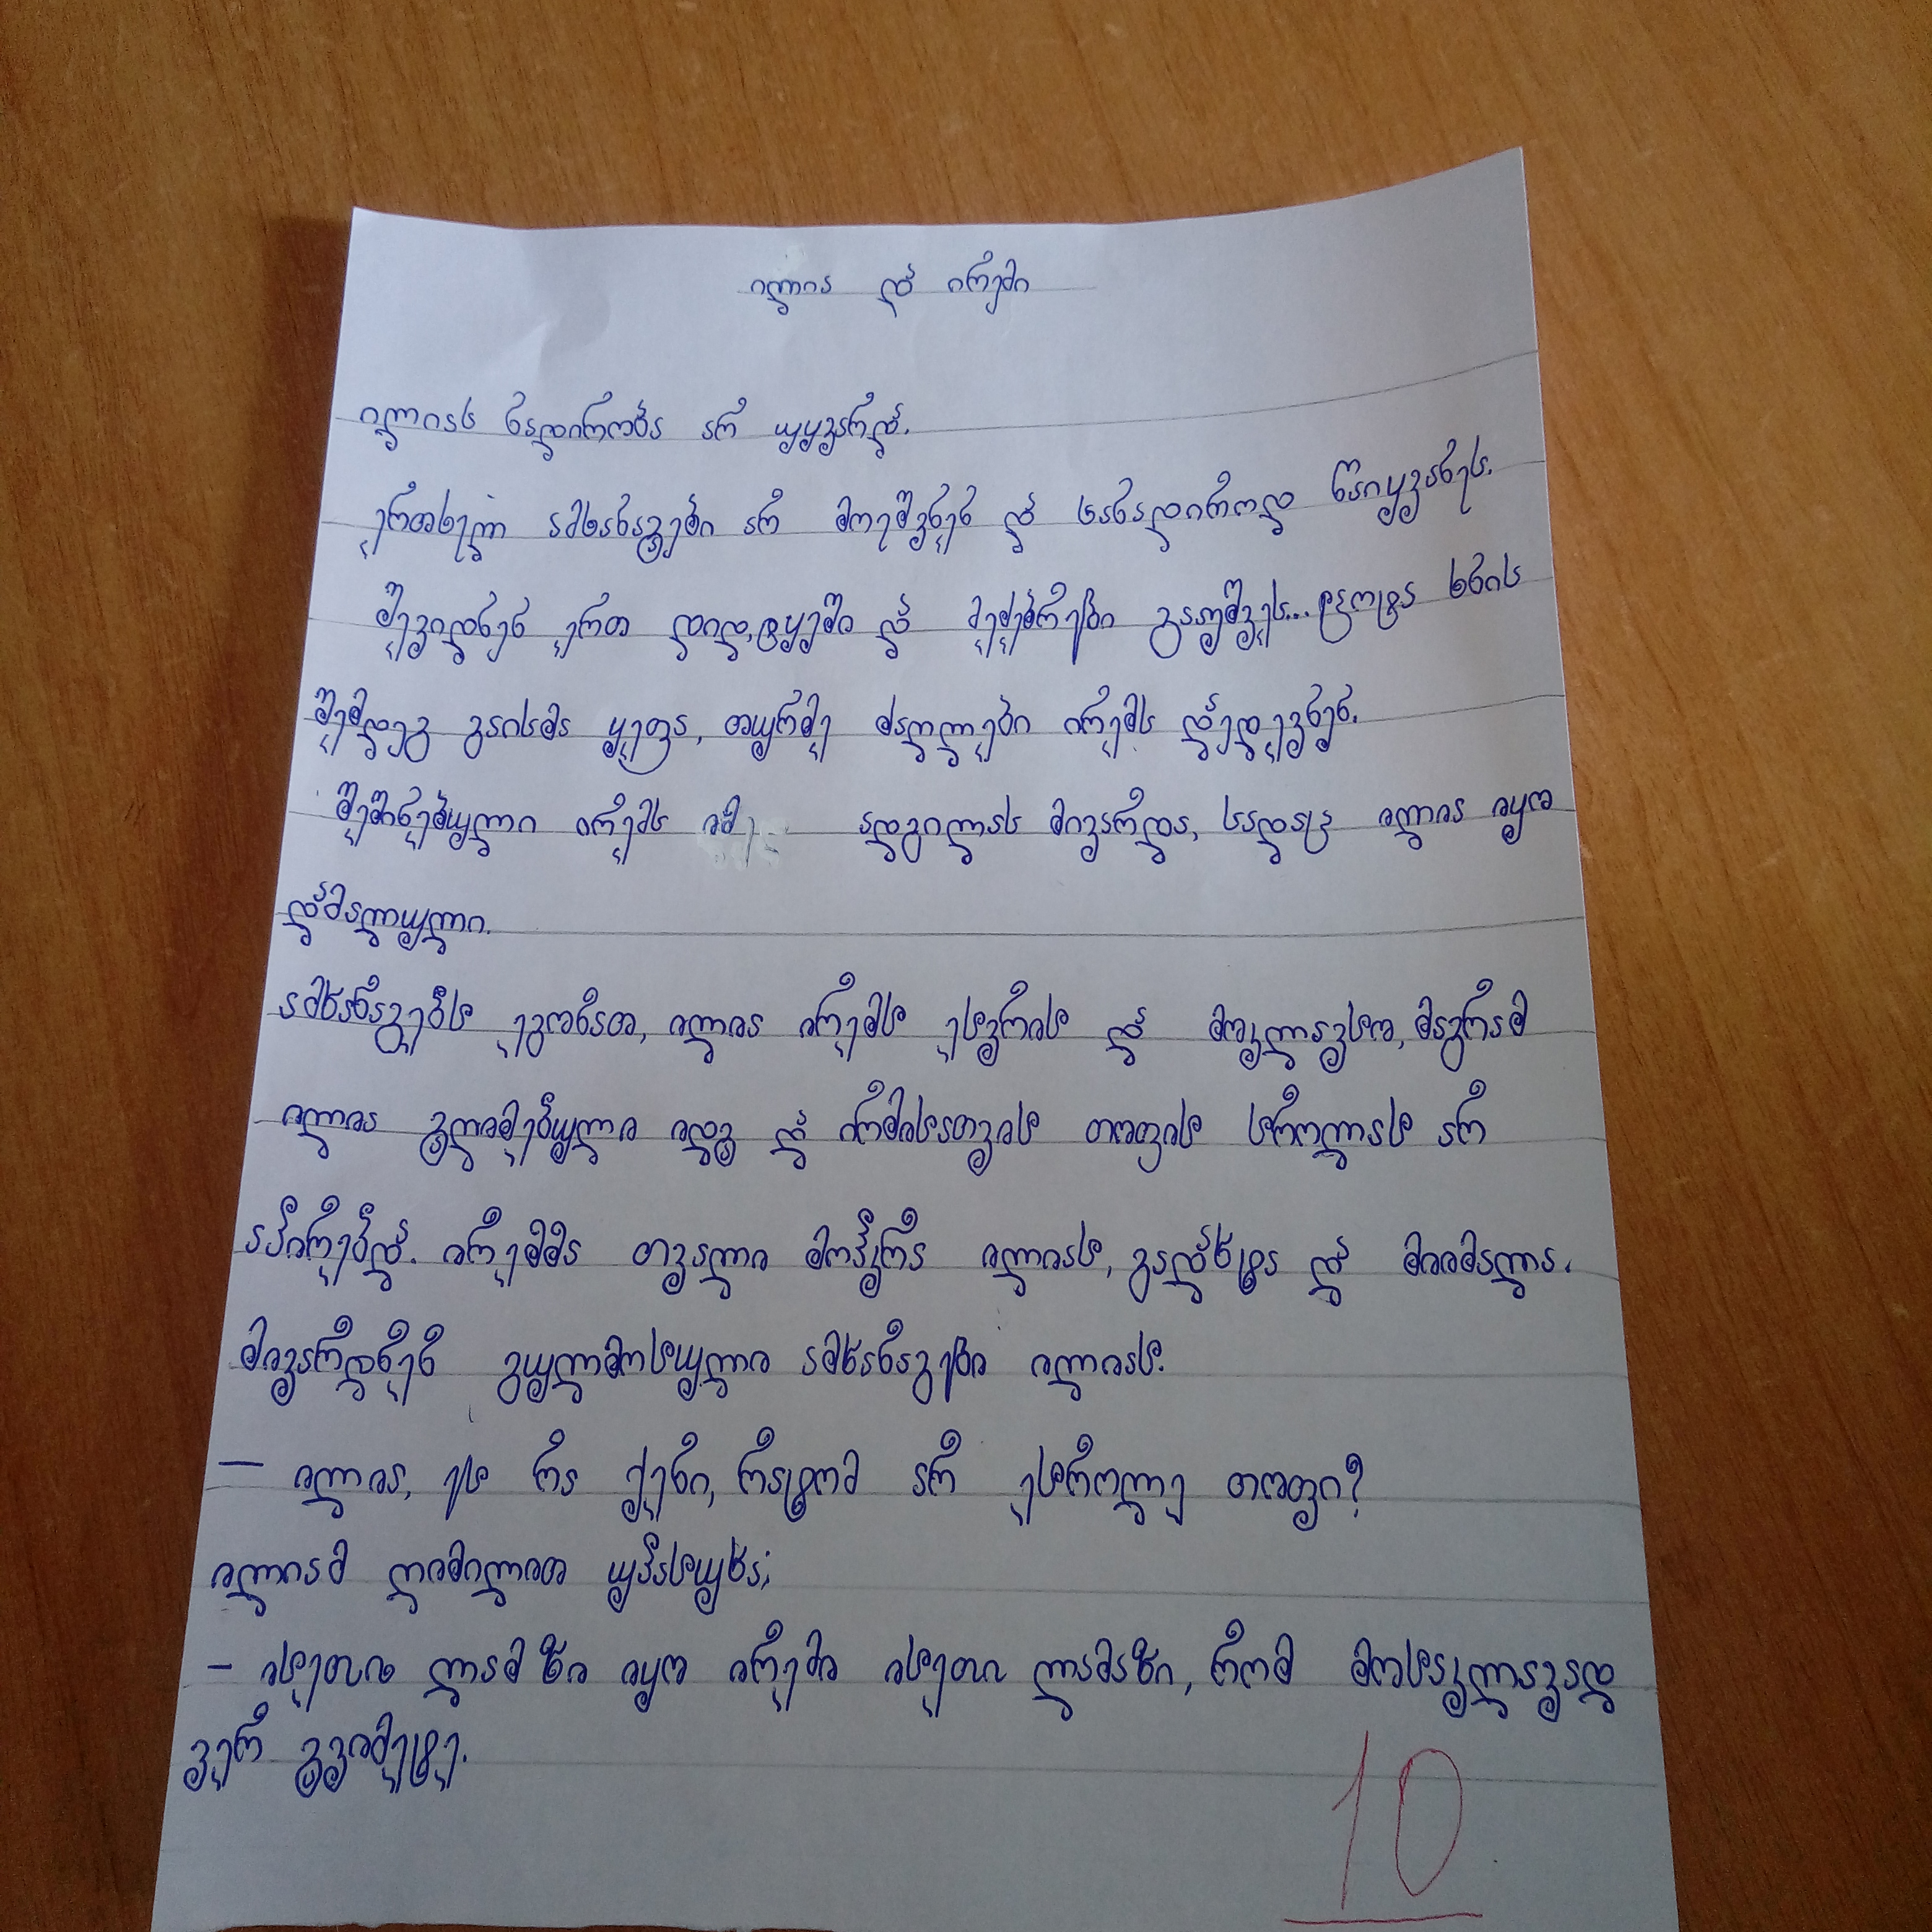 ილია და ირემი
ილიას ნადირობა არ უყვარდა.
ერთხელ ამხანაგები არ მოეშვნენ და სანადიროდ წაიყვანეს.
შევიდნენ ერთ დიდ, ტყეში და მეძებრები გაუშვეს... ცოტა ხნის
შემდეგ გაისმა ყეფა, თურმე ძაღლები ირემს დაედევნენ.
შეშინებული ირემს იმ ადგილას მივარდა, სადაც ილია იყო
დამალული.
ამხანაგებს ეგონათ, ილია ირემს ესვრის და მოკლავსო, მაგრამ
ილია გღიმებული იდგ და ირმისათვის თოფის სროლას არ
აპირებდა. ირემმა თვალი მოჰკრა ილიას, გადახტა და მიიმალა.
მივარდნენ გულმოსული ამხანაგები ილიას.
— ილია, ეს რა ქენი, რატომ არ ესროლე თოფი?
ილიამ ღიმილით უპასუხა;
- ისეთი ლამზი იყო ირემი ისეთი ლამაზი, რომ მოსაკლავად
ვერ გვიმეტე.
10